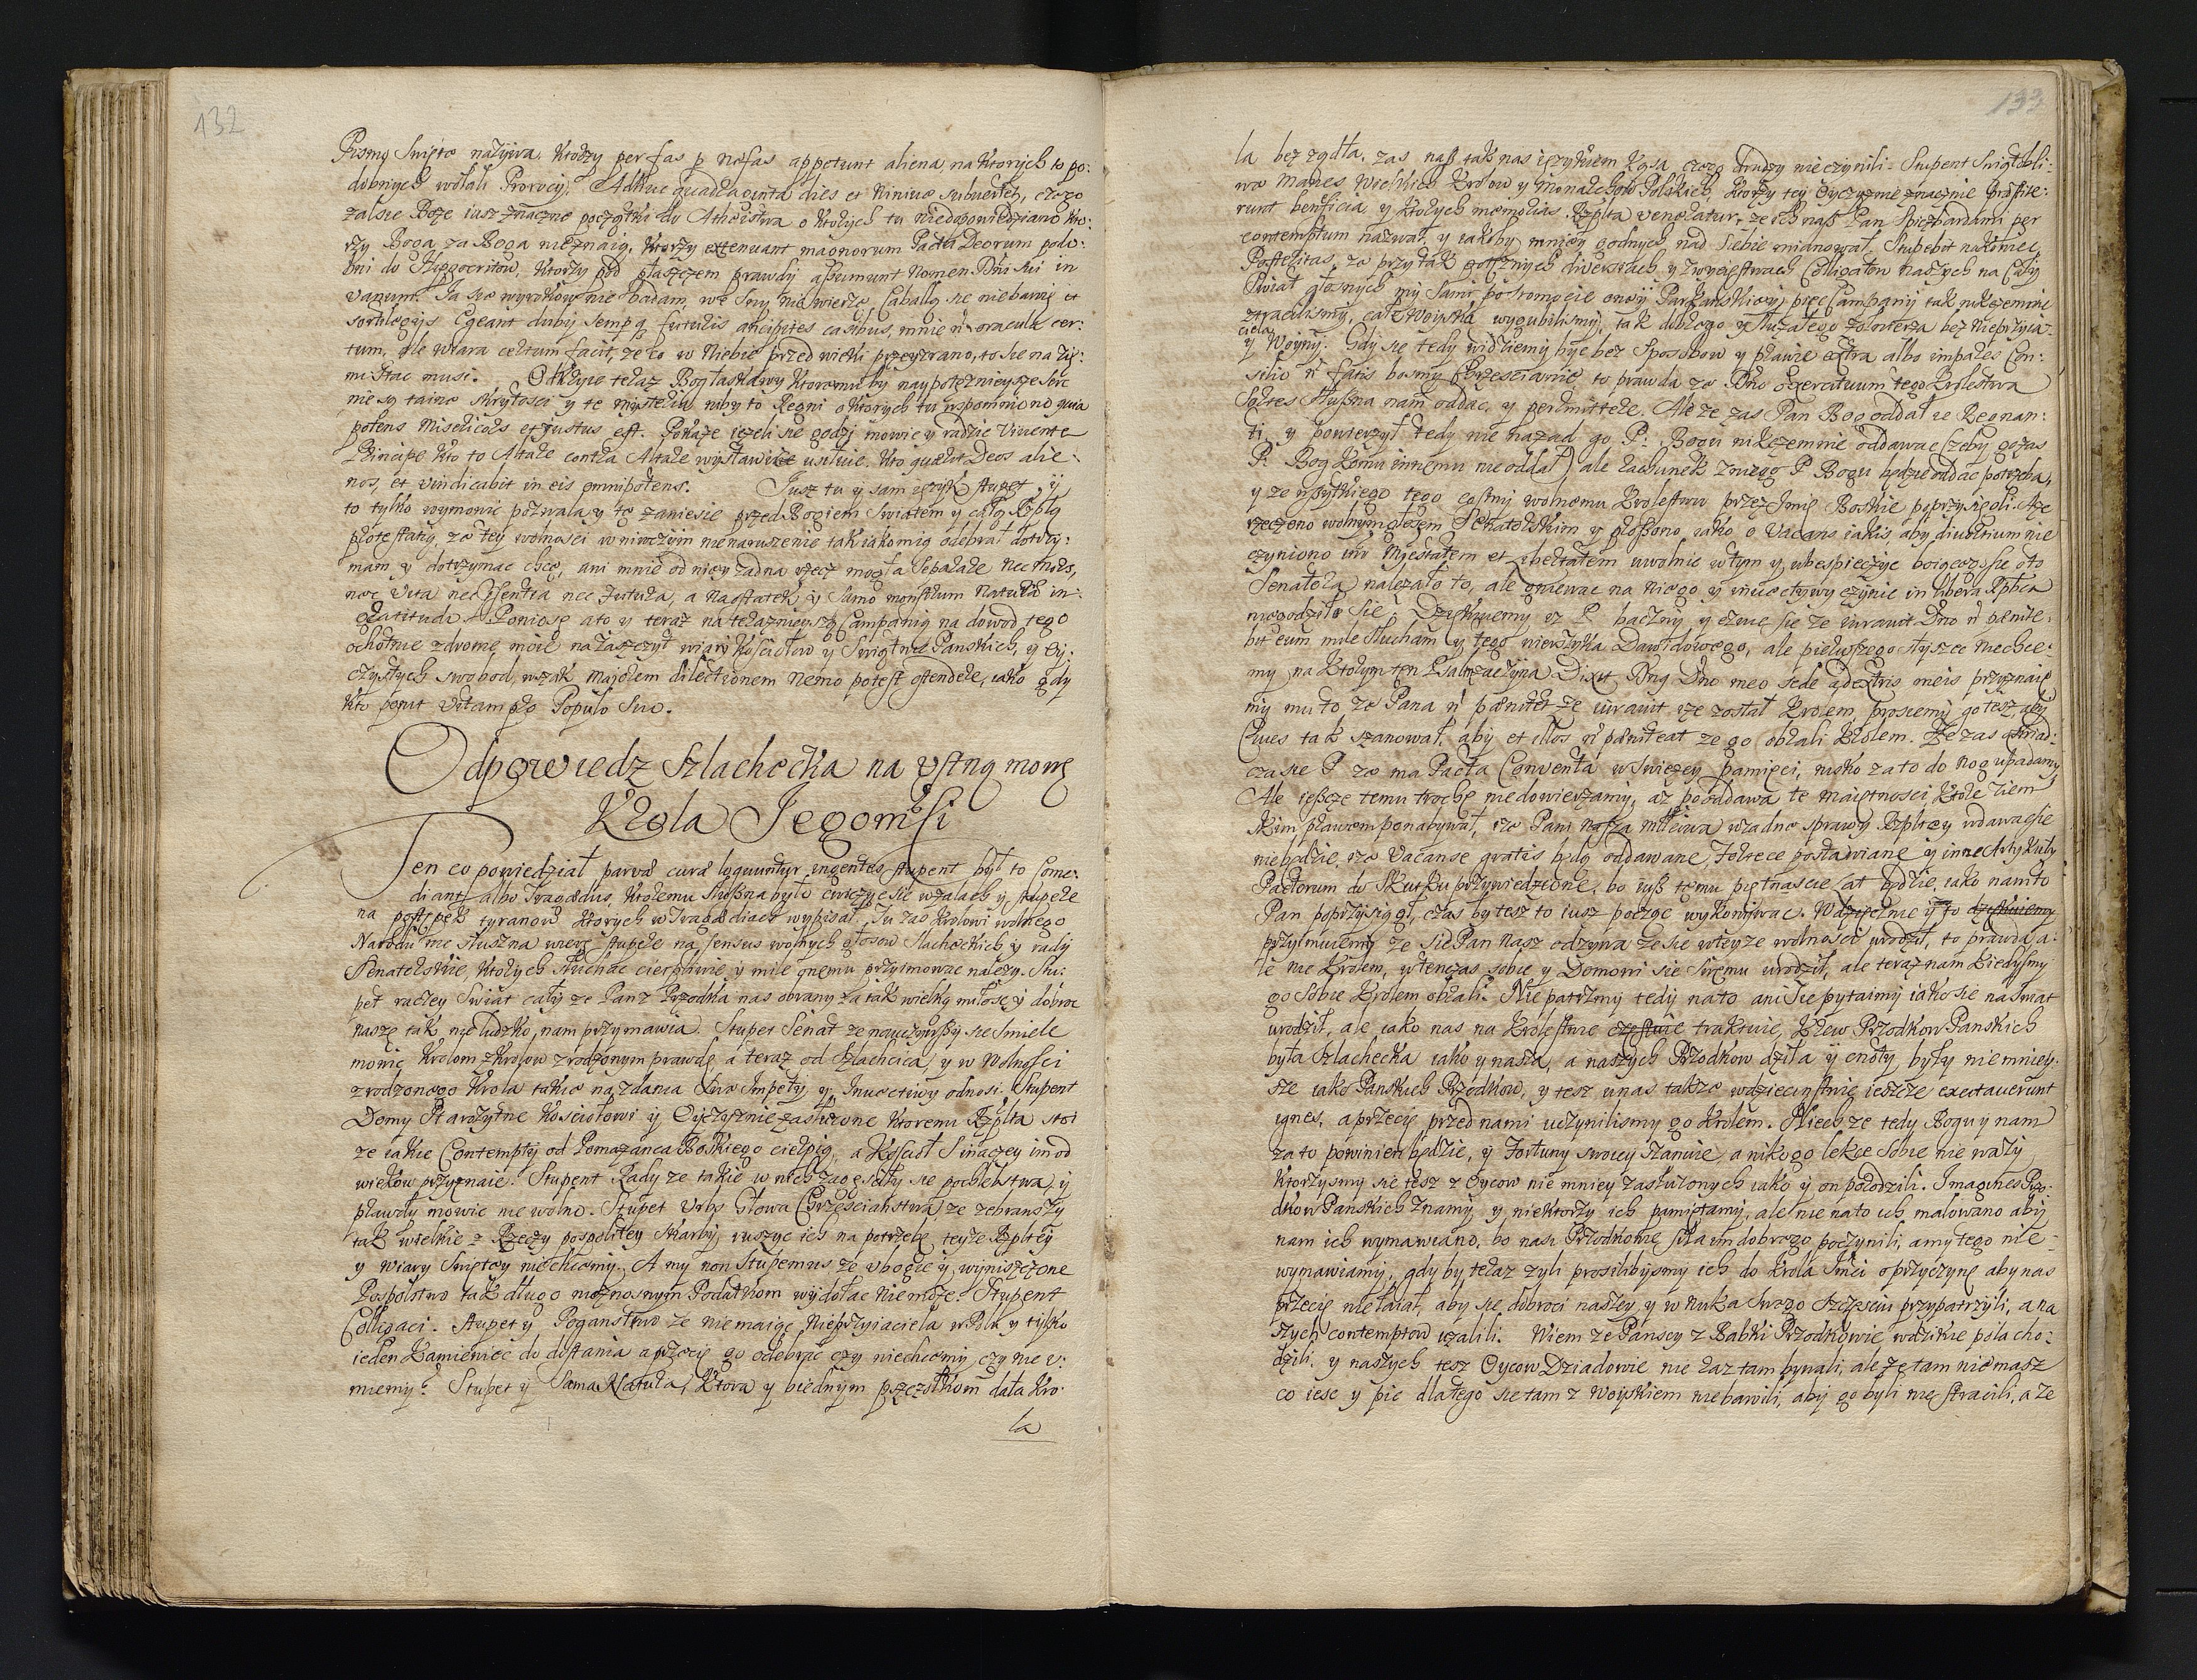 132
Pismo Swięte nazywa. Ktorzy per fas p nefas appetunt aliena, na ktorych to po:
dobnych wołali Prorocy: Adhuc quadraginta dies et Ninive subvertet, czego
zal sie Boze iusz znaczne początki do Atheistwa o ktorych tu niedopowiedziano kto:
rzy Boga za Boga nieznaią, ktorzy extenuant magnorum Facta Deorum podo:
bni do Hippocritow, ktorzy pod płaszczem prawdy assumunt Nomen Dni sui in
vanum. Ja sie wyrokow nie badam, we sny nie wierzę, Caballą sie niebawię et
sortilegijs Egeant dubij semp q futuris ancipites casibus, mnie n oracula cer:
tum, ale wiara certum facit, ze co w Niebie przed wieki przeyzrano, to sie na zię:
mi stac musi. Odkryie teraz Bog łaskawy ktoremu by naypotęznieysze
nie są taine skrytosci y te mysteria niby to Regni o ktorych tu wspomniono quia
potens Misericors et justus est. Pokaze iezeli sie godzi mowic y radzic Vivente
Principe kto to Altare contra Altare wystawic usiłuie. Kto quærit Deos alie:
nos, et vindicabit in eis omnipotens. Jusz tu y sam ięzyk stupet, y
to tylko wymowic pozwala, y te zaniesie przed Bogiem Swiatem y całą Rpltą
protestacyą, ze tey wolnosci w niwczym nienaruszenie tak iakomią odebrał dotrzy:
mam y dotrzymac chcę, ani mnie od niey zadna rzecz mogła separare nec Mors,
nec Vita nec præsentia nec Futura, a naostatek y samo monstrum Naturæ in:
gratitudo. Poniosę ato y teraz na teraznieyszą Campanią na dowod tego
ochotnie zdrowie moie na zaszczyt wiary Kosciołow y Swiątnic Panskich, y oy:
czystych swobod, wszak majorem dilectionem Nemo potest ostendere, iako gdy
kto ponit Vitam pro Populo suo.
Odpowiedz Szlachecka na ustną mowę
Krola Jegomsci
Ten co powiedział parvæ curæ loquuntur ingentes stupent był to Come:
diant albo Tragædus, ktoremu słuszna było cwiczyc sie w zalach y stupere
na postępek tyranow ktorych w Tragædiach wypisał. Tu zas krolowi wolnego
Narodu nie słuszna wierę stupere na sensus wolnych głosow slacheckich y rady
Senatorskie, ktorych słuchac cierpliwie y mile onemu przyimowac nalezy. Stu:
pet raczey Swiat cały ze Pan z Przodka nas obrany za tak wielką miłosc y dobroc
naszę tak nieludzko, nam przymawia. Stupet Senat ze nauczywszy sie smiele
mowic krolom z krolow zrodzonym prawdę a teraz od Szlachcica, y w Wolnosci
zrodzonego krola takie na zdania swe Impety, y, Invectivy odnosi. Stupent
Domy Starozytne kosciołowi y Oyczyznie zasłuzone ktoremi Rzplta stoi
ze iakie Contempty od Pomazanca Boskiego cierpią, a Koscioł S inaczey im od
wiekow przyznaie. Stupent Rady ze takie w nich zagęsciły sie pochlebstwa, y
prawdy mowic nie wolno. Stupet Urbs Głowa Chrzescianstwa ze zebranszy
tak wielkie z Rzeczy pospolitey skarby ruszyc ich na potrzebę teyze Rpltey
y Wiary Swiętey niechcemy. A my non Stupemus ze ubogie y wyniszczone
Pospolstwo tak długo nieznosnym Podatkom wydołac niemoze. Stupent
Colligaci. Stupet y Poganstwo ze niemaiąc Nieprzyiaciela w Polu y tylko
ieden Kamieniec do dostania a przecię go odebrac czy niechcemy, czy nie u:
miemy? Stupet y Sama Natura, ktora y biednym pszczołkom dała kro:
la
133
la bez ządła, zas nasz tak nas ięzykiem kąsa czego drudzy nieczynili. Stupent Swiątobli:
we Manes Wielkich Krolow y Monarchow Polskich ktorzy tey Oyczyznie znacznie præstite:
runt beneficia y ktorych memorias Rzplta veneratur, ze ich nasz Pan Spiezbardami per
contemptum nazwał, y iakoby mniey godnych, nad siebie mianował. Stupebit nakoniec
Posteritas, ze przy tak potęznych diversiach, y zwycięstwach Colligatow naszych na cały
Swiat głosnych my sami postronnęcie oney Parkanskiey, pięc Campanij tak nikczemnie
straciliśmy, całe Woyska wygubilismy, tak dobrego y słuzałego zołnierza bez nieprzyia:
ciela
y Woyny. Gdy sie tedy widziemy byc bez sposobow y prawie extra albo impares Con:
silio n fatis bosmy Chrzescianie, to prawda ze Dno Exercituum tego Krolestwa
Sortes słuszna nam oddac, y permittere. Ale ze zas Pan Bog oddał ie Regnan:
ti y powierzył tedy nie nazad go P: Bogu nikczemnie oddawac (zeby go zas
P: Bog komu innemu nie oddał) ale rachunek z niego P Bogu będzie oddac potrzeba,
y ze wszytkiego tego cosmy wolnemu Krolestwu przez Imię Boskie poprzysięgli. Aze
rzeczono wolnym głosem Senatorskim y proszono, iako o Vacans iakis, aby divortium nie
czyniono inter Mjestatem et libertatem uwolnic w tym y ubespieczyc boiącego sie oto
Senatora nalezało to, ale gniewac na niego y invectywy czynic in libera Rptca
niegodziło sie. Dziękuiemy iz P. baczny y czuie sie ze iuravit Dno n penite:
bit eum mile słucham y tego wierszyka Dawidowego, ale pierwszego słyszec niechce:
my na ktorym ten Psalm zaczyna Dixit Dns Dno meo sede a dextris meis przyznaie:
my mu to ze Pana n pænitet ze iuravit ze został krolem, prosiemy go tesz, aby
Cives tak szanował, aby et illos n pæniteat ze go obrali krolem. Ze zas oswiad:
cza sie P ze ma Pacta Conventa w swiezey pamięci, nisko za to do nog upadamy,
Ale ieszcze temu trochę niedowierzamy, az pooddawa te maiętnosci ktore ziem
skim prawem ponabywał, ize Pani nasza Mściwa w zadne sprawy Rzpltey wdawac sie
niebędzie, ize Vacanse gratis będą oddawane, Fortece postawiane y inne Artykuły
Pactorum do skutku przywiedzione, bo iusz temu piętnascie lat będzie, iako nam to
Pan poprzysiągł, czas by tesz to iusz począc wykonywac. Wdzięcznie y to dziękuiemy
przyimuiemy ze sie Pan Nasz odzywa ze sie w teyze wolnosci urodził, to prawda, a:
le nie krolem, w tenczas sobie y Domowi sie swemu urodził, ale teraz nam kiedysmy
go sobie krolem obrali. Nie patrzmy tedy na to ani sie pytaimy iako sie na swiat
urodził, ale iako nas na krolestwie czestuie traktuie, krew Przodkow Panskich
była Szlachecka iako y nasza, a naszych Przodkow dzieła y cnoty były niemniey:
sze iako Panskich Przodkow, y tesz u nas takze w dziecinstwie ieszcze exectaverunt
ignes, a przecię przed nami uczynilismy go krolem. Niech ze tedy Bogu y nam
za to powinien będzie, y Fortuny swoiey szanuie, a nikogo lekce sobie nie wazy
ktorzysmy sie tesz z Oycow nie mniey zasłuzonych iako y on porodzili. Imagines Prze:
dkow Panskich znamy, y niektorzy ich pamiętamy, ale nie na to ich malowano aby
nam ich wymawiano, bo nasi Przodkowie siła im dobrego poczynili, a my tego nie
wymawiamy, gdy by teraz zyli prosilibysmy ich do krola Jmci o przyczynę aby nas
przecię nie łaiał, aby sie dobroci naszey, y w nuka swego szczęściu przypatrzyli, a na
szych contemptow uzalili. Wiem ze Panscy z Babki Przodkowie w dzikie pola cho:
dzili, y naszych tesz Oycow Dziadowie nie raz tam bywali, ale ze tam niemasz
co iesc y pic dlatego sie tam z Woyskiem niebawili, aby go byli nie stracili, a ze